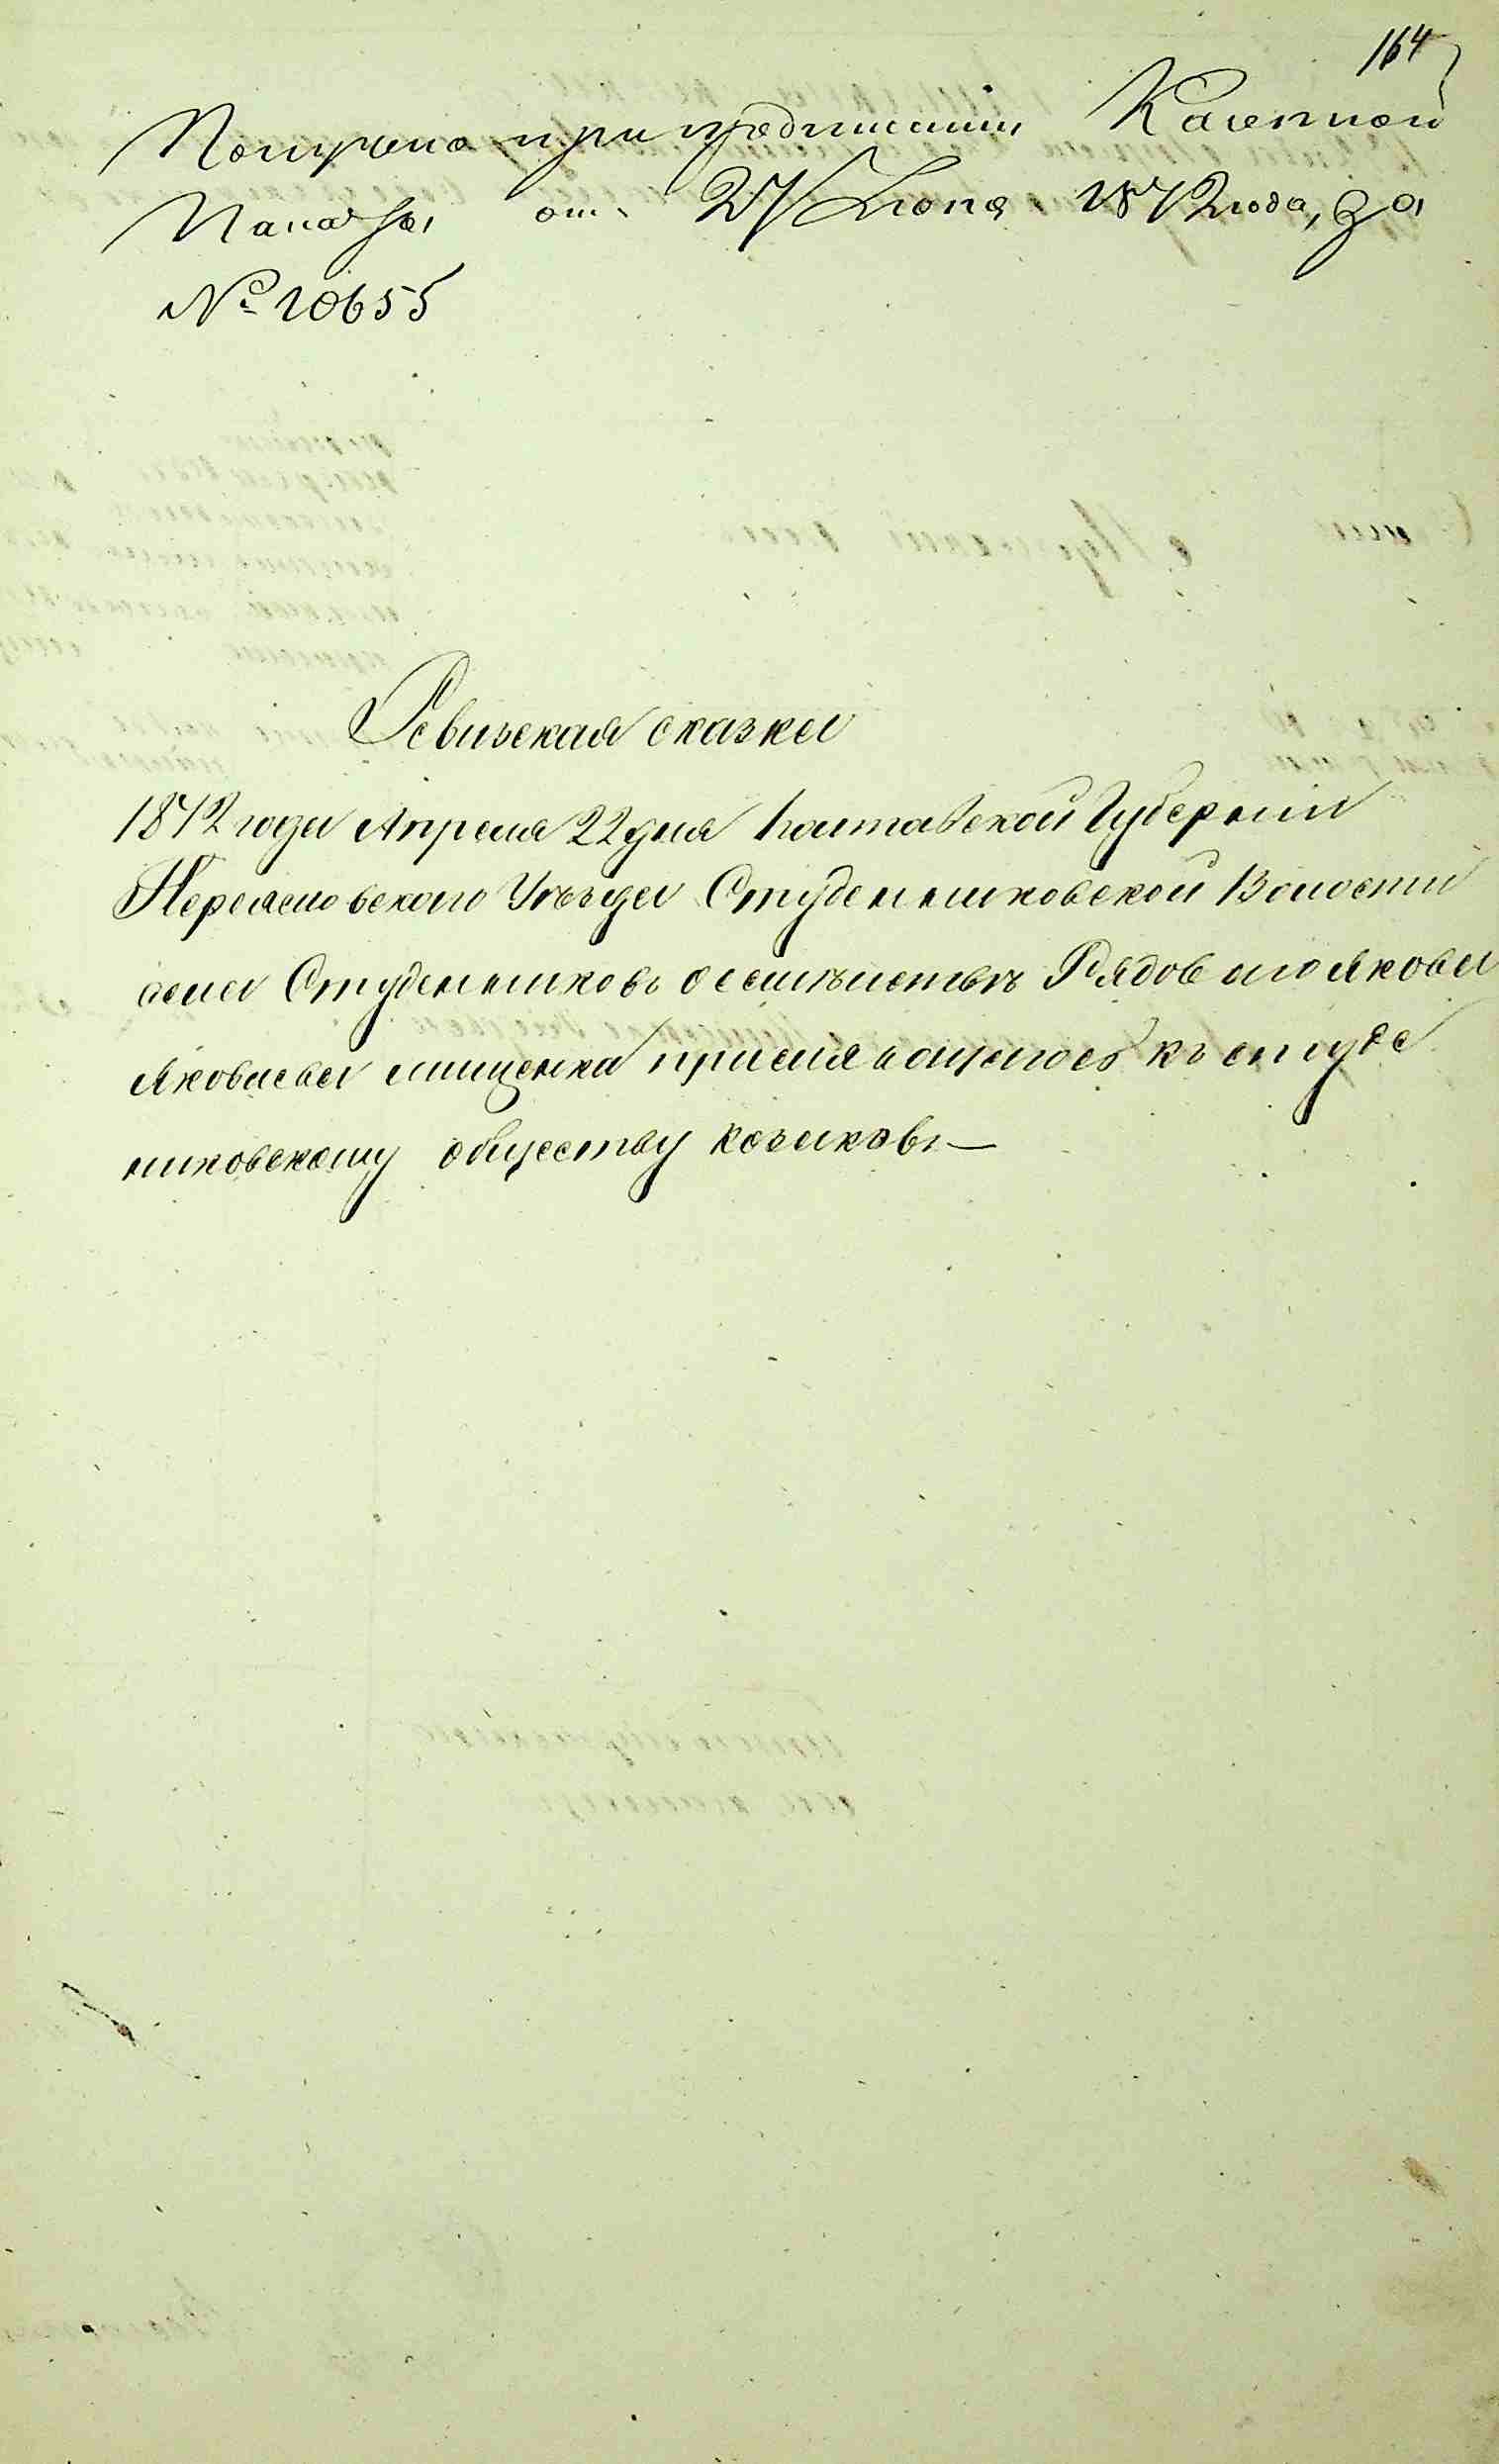 164
Получена при предписании Казенной
Палаты отъ 27 Июня 1872 года, за
№ 10655
Ревизская сказка
1872 года Апреля 22 дня Полтавской Губернии
Переяславского Уѣзда Студенниковской Волости
села Студенниковъ о семѣйствѣ Рядового Якова
Яковлева Мищенка к студе
никовскому обществу козаковъ —